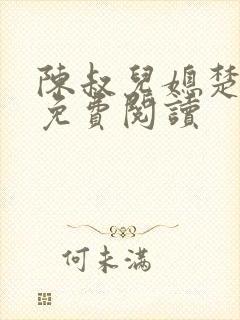 陳叔兒媳楚
免費閱讀
何未滿